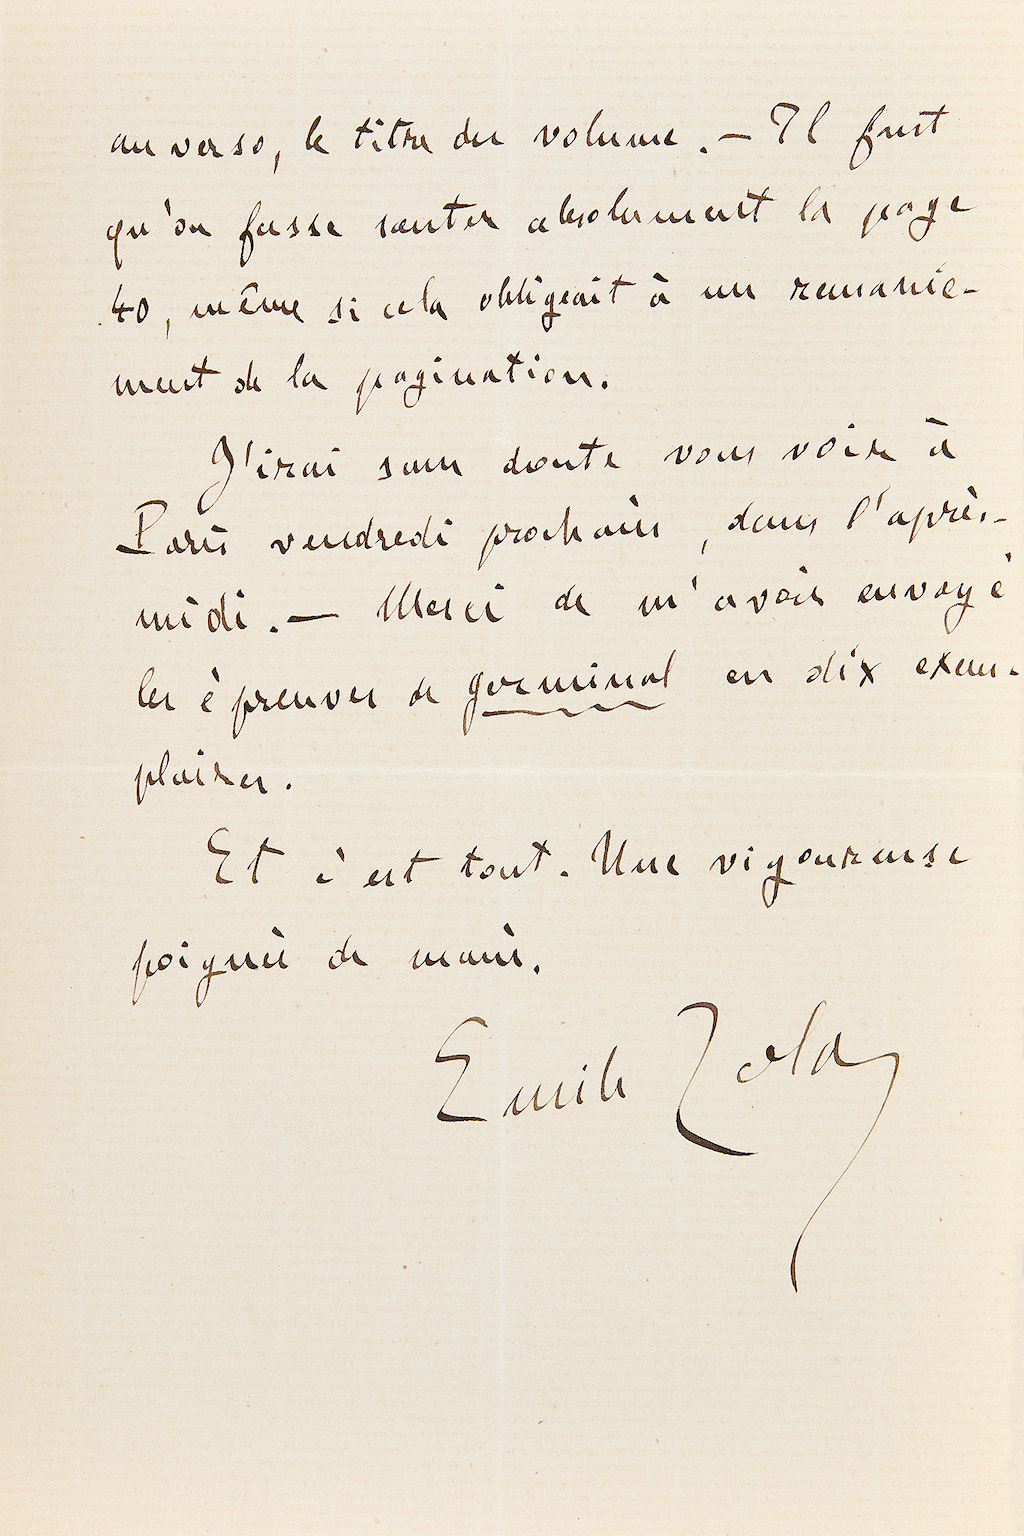 au verso, le titre du volume. — Il faut
qu'on fasse sauter absolument la page
40, même si cela obligeait à un remanie-
ment de la pagination.
J'irai sans doute vous voir à
Paris vendredi prochain, dans l'après-
midi. — Merci de m'avoir envoyé
les épreuves de Germinal en dix exem-
plaires.
Et c'est tout. Une vigoureuse
poignée de main.
Emile Zola